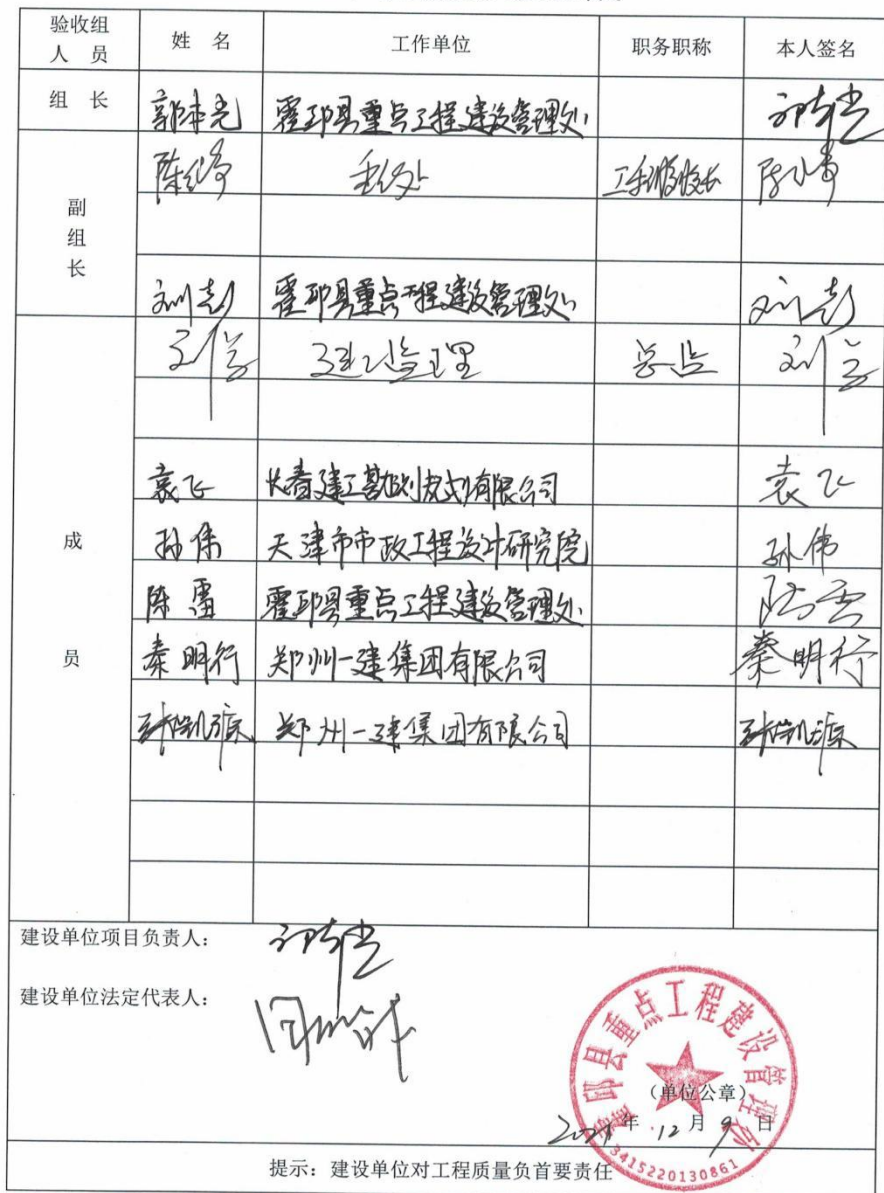 验收组人员 姓 名 工作单位 职务职称 本人签名
组 长 郭本先 霍邱县重点工程建设管理处
副组长
刘彭 霍邱县重点工程建设管理处 刘彭
监理 总监
成员
袁飞 有限公司 袁飞
孙伟 天津市市政工程设计研究院 孙伟
陈雷 霍邱县重点工程建设管理处 陈雷
秦明行 郑州一建集团有限公司 秦明行
郑州一建集团有限公司
建设单位项目负责人：
建设单位法定代表人：
霍邱县重点工程建设管理处
（单位公章）
2021年12月9日
3415220130861
提示：建设单位对工程质量负首要责任